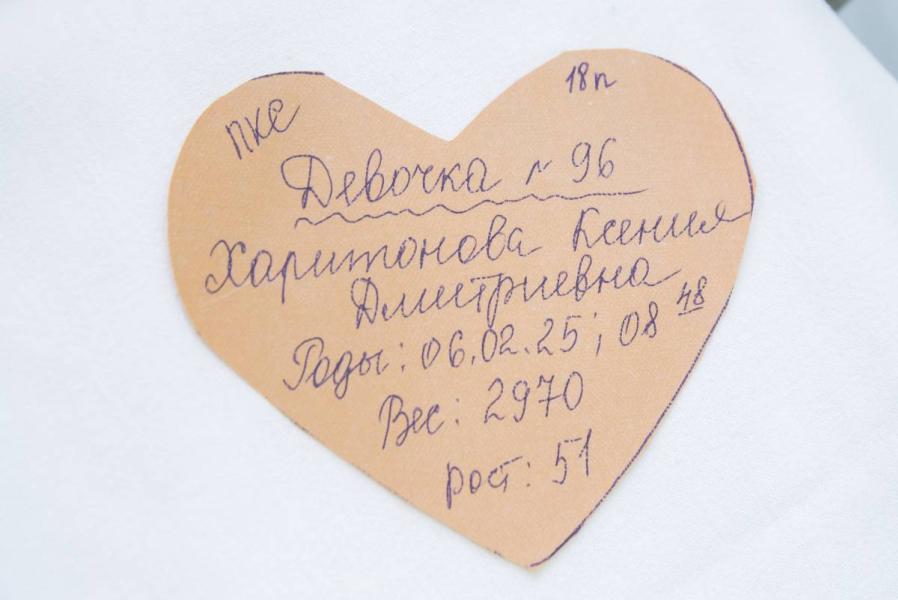 пкс
18п
Девочка N 96
Харитонова Ксения
Дмитриевна
Роды: 06.02.25; 08 48
Вес: 2970
рост: 51